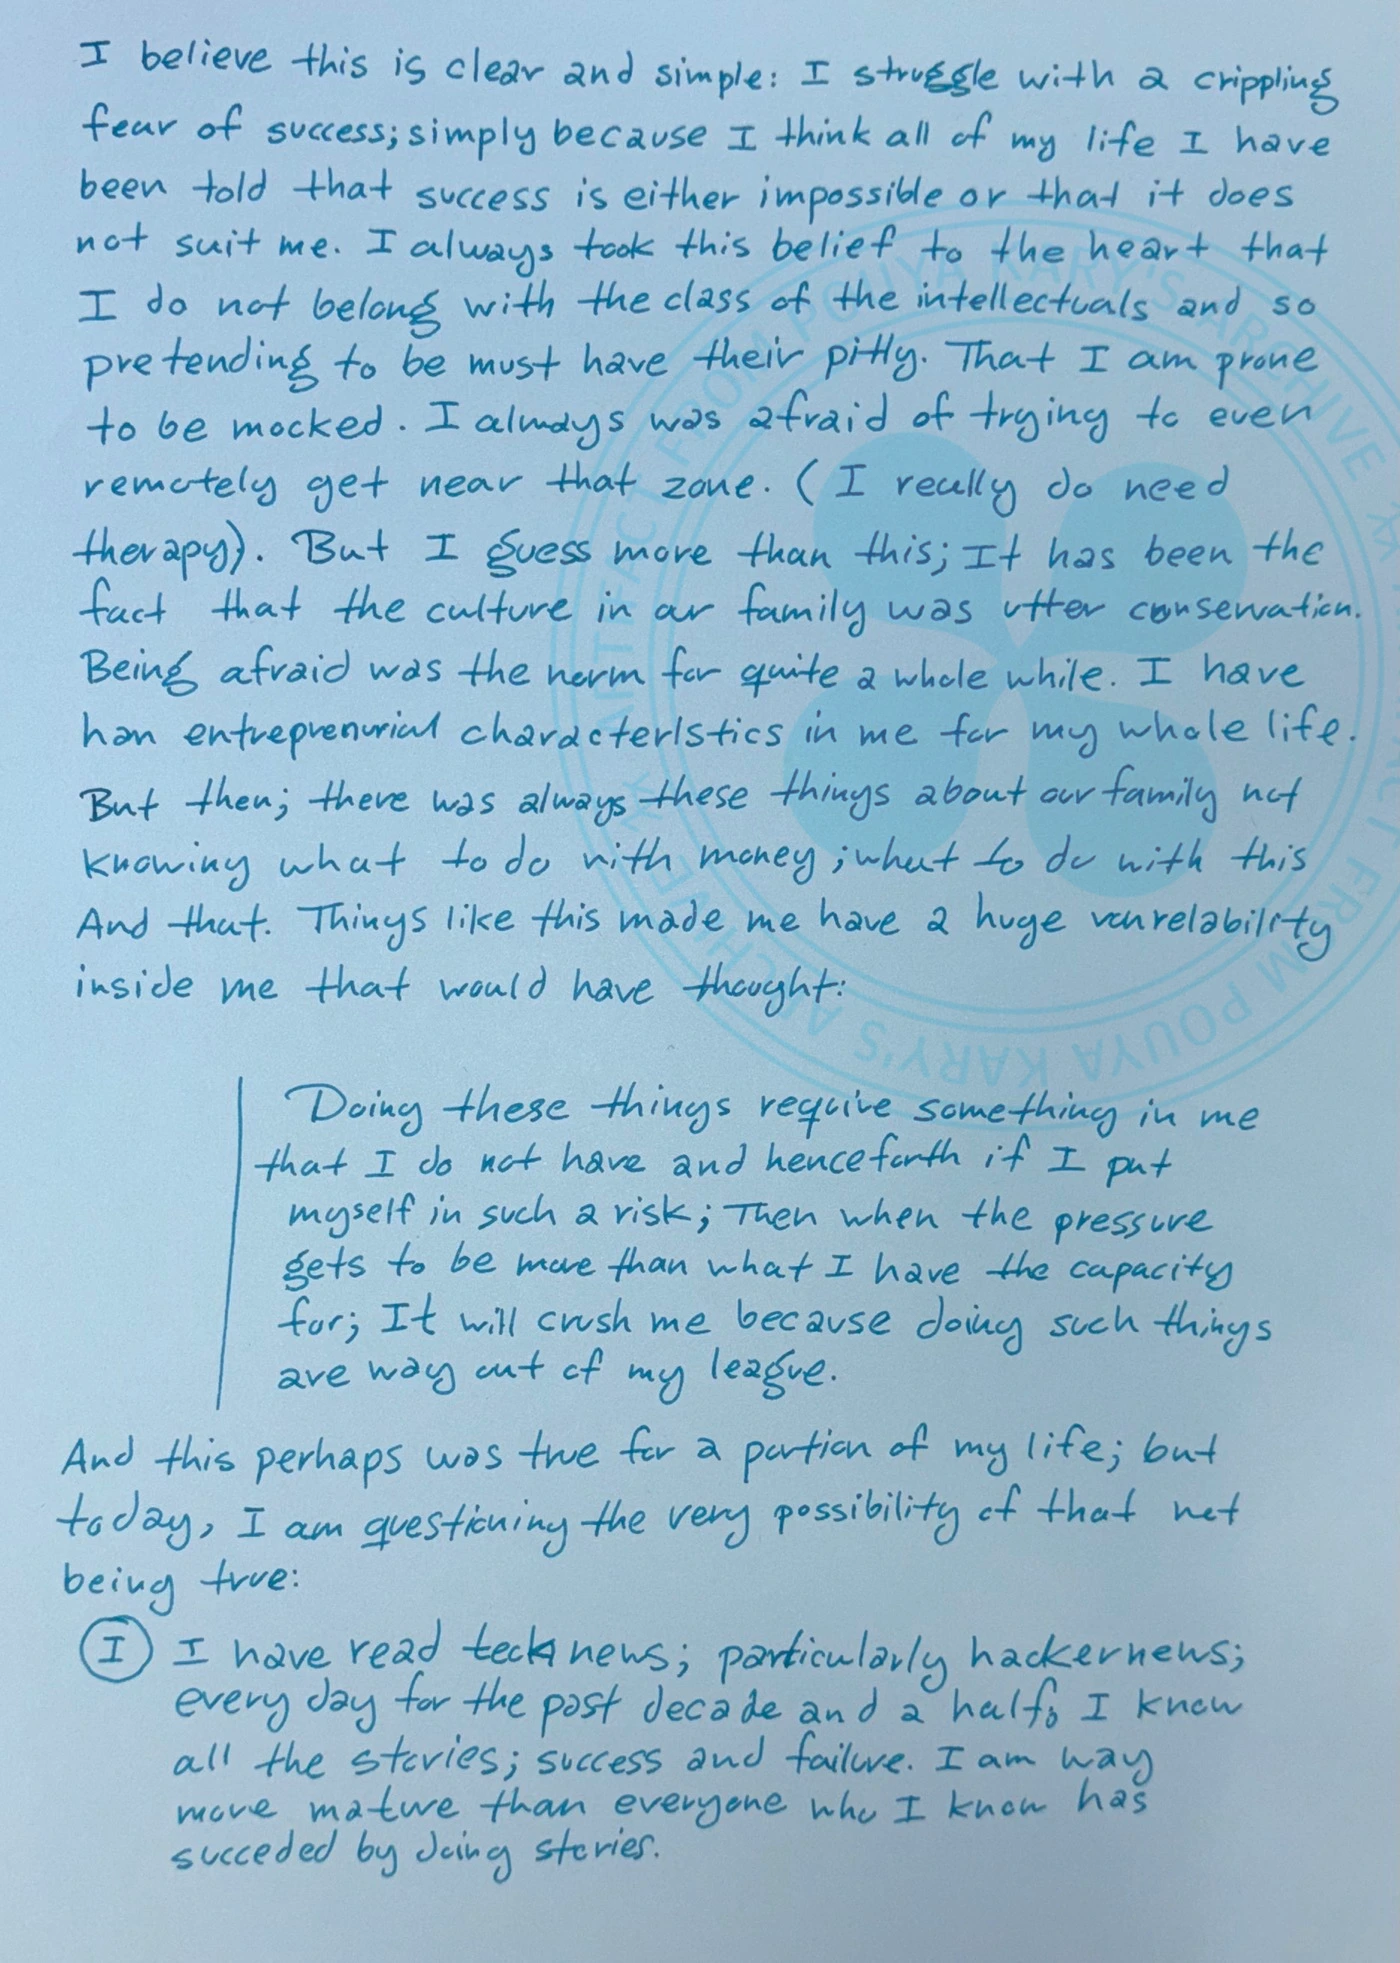 I believe this is clear and simple: I struggle with a crippling
fear of success; simply because I think all of my life I have
been told that success is either impossible or that it does
not suit me. I always took this belief to the heart that
I do not belong with the class of the intellectuals and so
pretending to be must have their pitty. That I am prone
to be mocked. I always was afraid of trying to even
remotely get near that zone. (I really do need
therapy). But I guess more than this; It has been the
fact that the culture in our family was utter conservation.
Being afraid was the norm for quite a whole while. I have
han entreprenurial characteristics in me for my whole life.
But then; there was always these things about our family not
knowing what to do with money; what to do with this
And that. Things like this made me have a huge
inside me that would have thought:
Doing these things require something in me
that I do not have and henceforth if I put
myself in such a risk; Then when the pressure
gets to be more than what I have the capacity
for; It will crush me because doing such things
are way out of my league.
And this perhaps was true for a portion of my life; but
today, I am questioning the very possibility of that not
being true:
I I have read tech news; particularly hackernews;
every day for the past decade and a half; I know
all the stories; success and failure. I am way
more mature than everyone who I know has
succeded by doing stories.
ARTIFACT FROM POUYA KARY'S ARCHIVE
ARTIFACT FROM POUYA KARY'S ARCHIVE